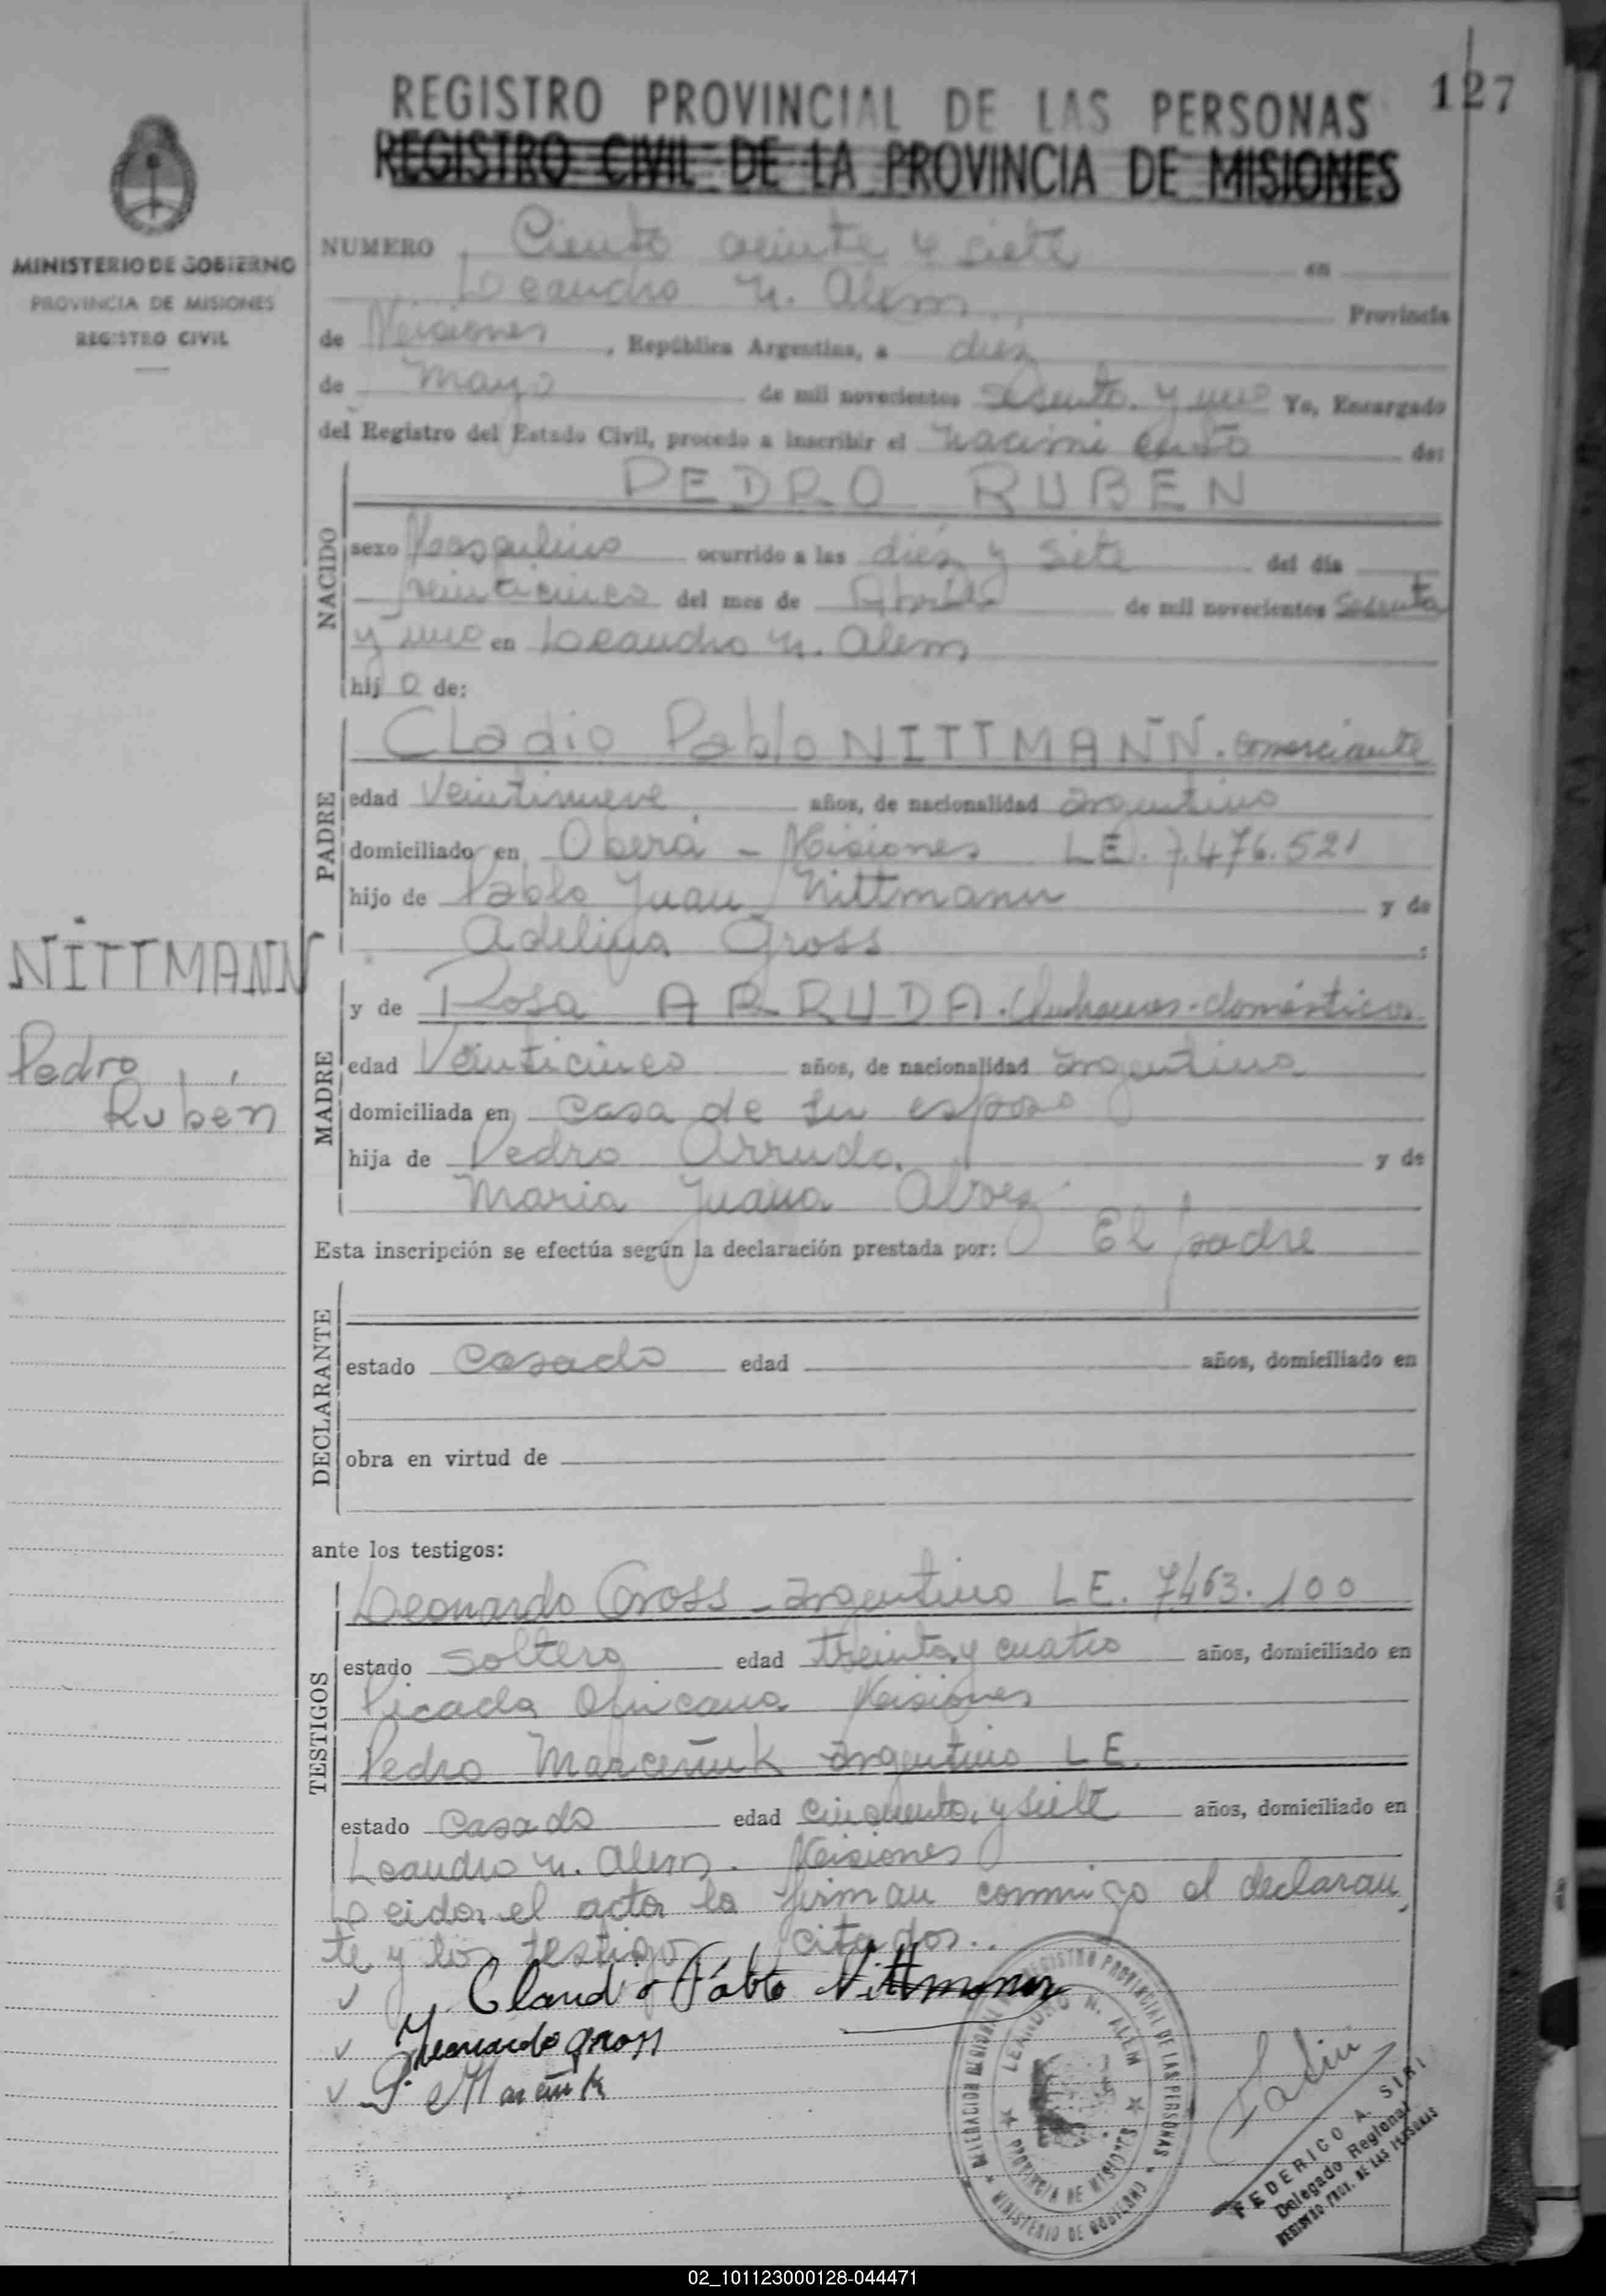 127
REGISTRO PROVINCIAL DE LAS PERSONAS
REGISTRO CIVIL DE LA PROVINCIA DE MISIONES
MINISTERIO DE GOBIERNO
PROVINCIA DE MISIONES
REGISTRO CIVIL
NUMERO Ciento veinte y siete en
Leandro N. Alem Provincia
de Misiones, República Argentina, a diez
de Mayo de mil novecientos sesenta y uno Yo, Encargado
del Registro del Estado Civil, procedo a inscribir el nacimiento de:
NACIDO
PEDRO RUBEN
sexo Masculino ocurrido a las diez y siete del día
veinticinco del mes de Abril de mil novecientos sesenta
y uno en Leandro N. Alem
hij o de:
PADRE
Cladio Pablo NITTMANN. comerciante
edad Veintinueve años, de nacionalidad argentino
domiciliado en Oberá - Misiones LE. 7.476.521
hijo de Pablo Juan Nittmann y de
Adelina Gross ;
NITTMANN
Pedro
Rubén
MADRE
y de Rosa ARRUDA. quehaceres-domésticos
edad Veinticinco años, de nacionalidad argentina
domiciliada en casa de su esposo
hija de Pedro Arruda. y de
Maria Juana Alvez
Esta inscripción se efectúa según la declaración prestada por: El padre
DECLARANTE
estado casado edad años, domiciliado en
obra en virtud de
ante los testigos:
TESTIGOS
Leonardo Gross - argentino LE. 7463.100
estado soltero edad treinta y cuatro años, domiciliado en
Picada Misiones
Pedro argentino LE.
estado casado edad cincuenta y siete años, domiciliado en
Leandro N. Alem. Misiones
Leida el acta la firman conmigo el declaran
te y los testigos citados..
Claudio Pablo Nittmann
Leonardo gross
P.
DELEGACION REGIONAL REGISTRO PROVINCIAL DE LAS PERSONAS
LEANDRO N. ALEM
PROVINCIA DE MISIONES
MINISTERIO DE GOBIERNO
FEDERICO A. SIRI
Delegado Regional
REGISTRO PROV. DE LAS PERSONAS
02_101123000128-044471